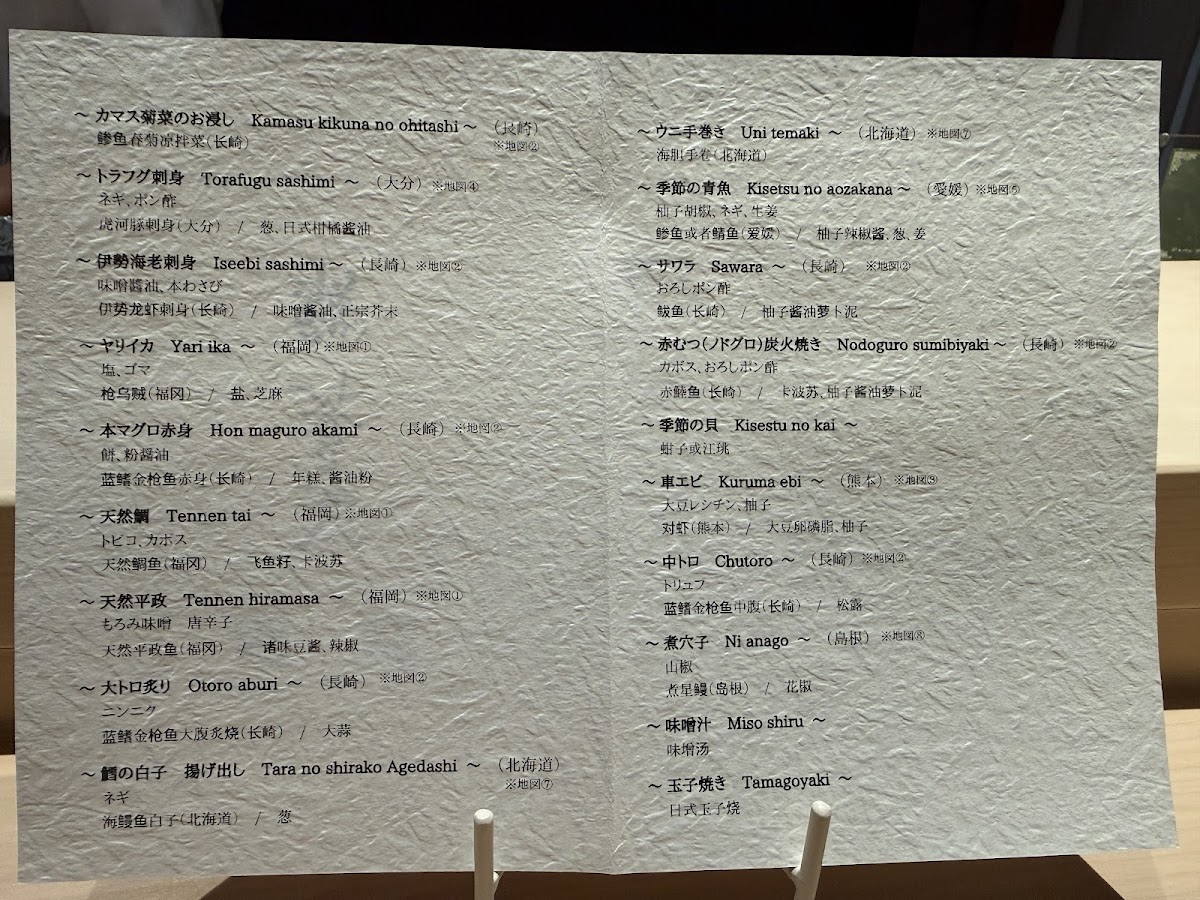 ～ カマス菊菜のお浸し Kamasu kikuna no ohitashi ～ （長崎）
※地図②
鲹鱼春菊凉拌菜（长崎）
～ トラフグ刺身 Torafugu sashimi ～ （大分） ※地図④
ネギ、ポン酢
虎河豚刺身（大分） / 葱、日式柑橘酱油
～ 伊勢海老刺身 Iseebi sashimi ～ （長崎） ※地図②
味噌醬油、本わさび
伊势龙虾刺身（长崎） / 味噌酱油、正宗芥末
～ ヤリイカ Yari ika ～ （福岡） ※地図①
塩、ゴマ
枪乌贼（福冈） / 盐、芝麻
～ 本マグロ赤身 Hon maguro akami ～ （長崎） ※地図②
餅、粉醤油
蓝鳍金枪鱼赤身（长崎） / 年糕、酱油粉
～ 天然鯛 Tennen tai ～ （福岡） ※地図①
トビコ、カボス
天然鲷鱼（福冈） / 飞鱼籽、卡波苏
～ 天然平政 Tennen hiramasa ～ （福岡） ※地図①
もろみ味噌 唐辛子
天然平政鱼（福冈） / 诸味豆酱、辣椒
～ 大トロ炙り Otoro aburi ～ （長崎） ※地図②
ニンニク
蓝鳍金枪鱼大腹炙烧（长崎） / 大蒜
～ 鱈の白子 揚げ出し Tara no shirako Agedashi ～ （北海道）
※地図⑦
ネギ
海鳗鱼白子（北海道） / 葱
～ ウニ手巻き Uni temaki ～ （北海道） ※地図⑦
海胆手卷（北海道）
～ 季節の青魚 Kisetsu no aozakana ～ （愛媛） ※地図⑤
柚子胡椒、ネギ、生姜
鲹鱼或者鲭鱼（爱媛） / 柚子辣椒酱、葱、姜
～ サワラ Sawara ～ （長崎） ※地図②
おろしポン酢
鲅鱼（长崎） / 柚子酱油萝卜泥
～ 赤むつ（ノドグロ）炭火焼き Nodoguro sumibiyaki ～ （長崎） ※地図②
カボス、おろしポン酢
赤鯥鱼（长崎） / 卡波苏、柚子酱油萝卜泥
～ 季節の貝 Kisestu no kai ～
蚶子或江珧
～ 車エビ Kuruma ebi ～ （熊本） ※地図③
大豆レシチン、柚子
对虾（熊本） / 大豆卵磷脂、柚子
～ 中トロ Chutoro ～ （長崎） ※地図②
トリュフ
蓝鳍金枪鱼中腹（长崎） / 松露
～ 煮穴子 Ni anago ～ （島根） ※地図⑧
山椒
煮星鳗（岛根） / 花椒
～ 味噌汁 Miso shiru ～
味增汤
～ 玉子焼き Tamagoyaki ～
日式玉子烧